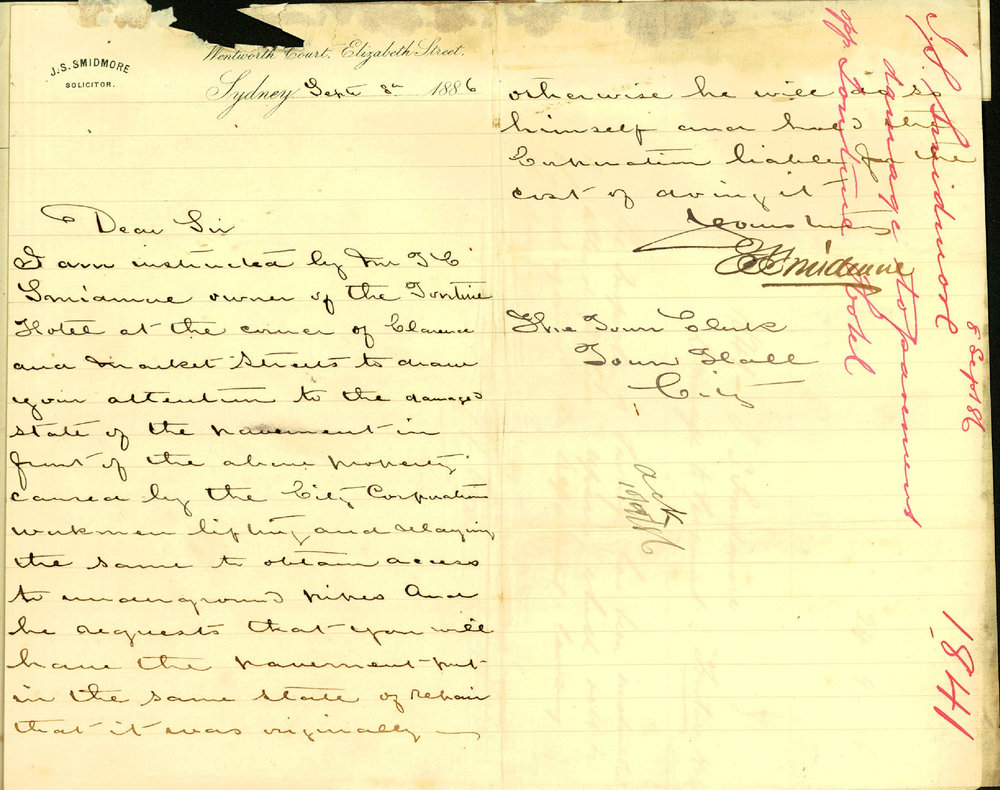 J. S. SMIDMORE
SOLICITOR.
Wentworth Court, Elizabeth Street.
Sydney Sept 8th 1886
Dear Sir
I am instructed by Mr T E
Smidmore owner of the Tontine
Hotel at the corner of Clarence
and Market Streets to draw
your attention to the damaged
state of the pavement in
front of the above property
caused by the City Corporation
workmen lifting and relaying
the same to obtain access
to underground pipes And
he requests that you will
have the pavement put
in the same state of repair
that it was originally
otherwise he will do so
himself and hold the
Corporation liable for the
cost of doing it
Yours truly
Smidmore
The Town Clerk
Town Hall
City
ack
10/9/86
J. S. Smidmore
8 Sept 86
damage to pavement
opp. Tontine Hotel
1841